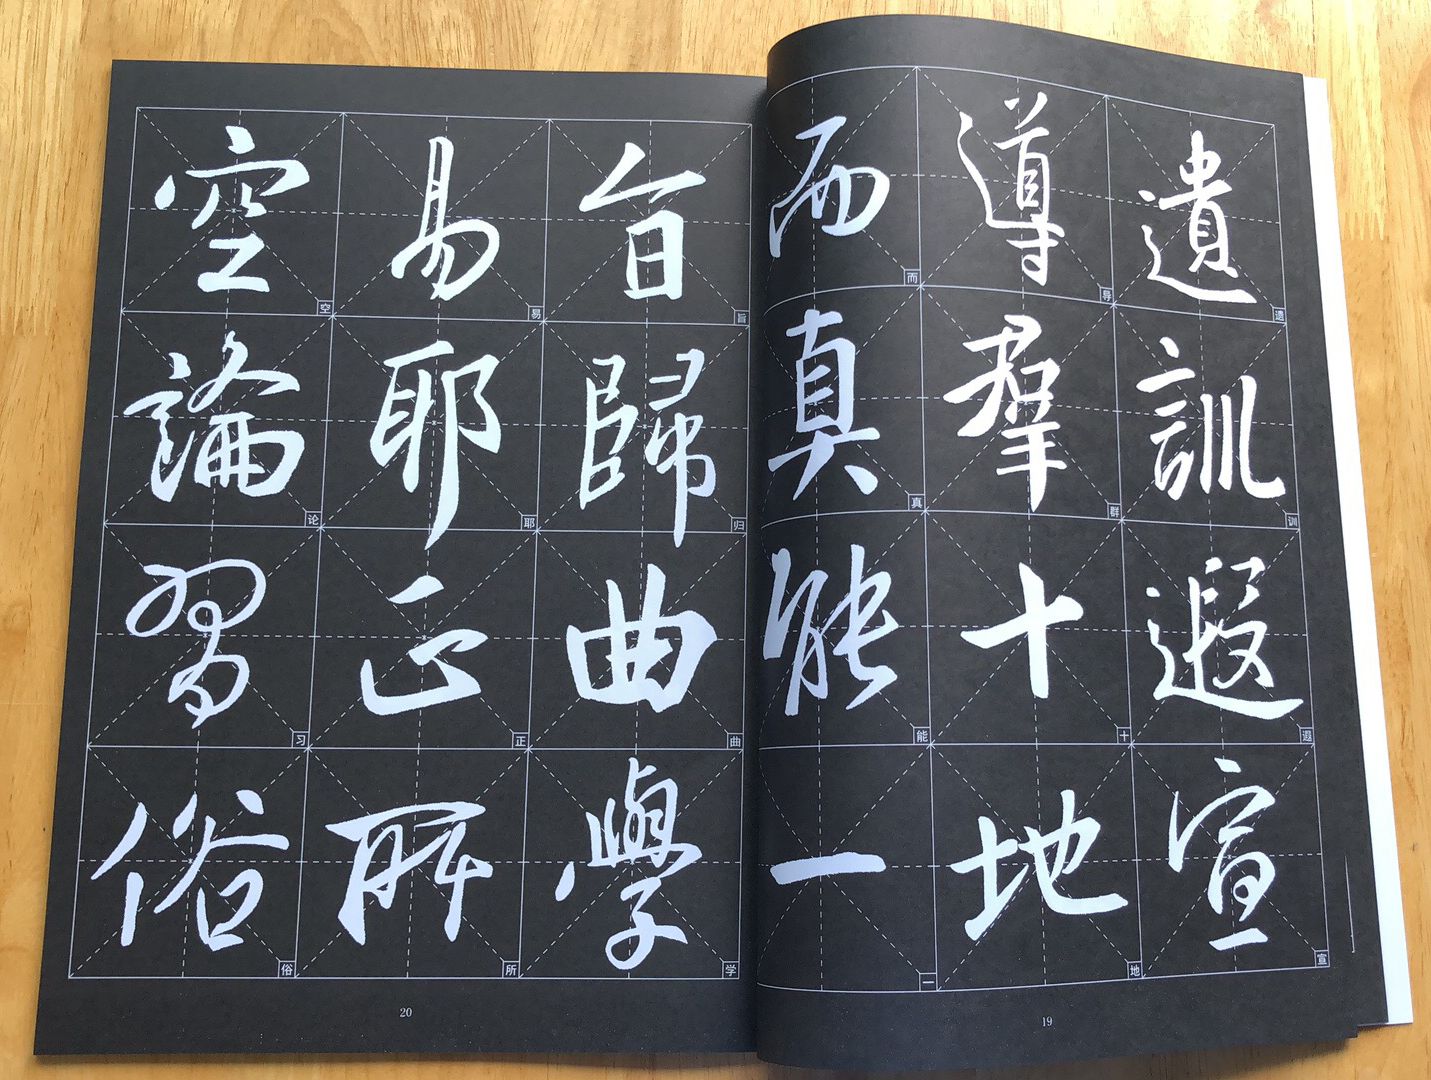 遺訓遐宣
遗训遐宣
導羣十地
导群十地
而真能一
而真能一
19
旨歸曲學
旨归曲学
易耶正所
易耶正所
空論習俗
空论习俗
20